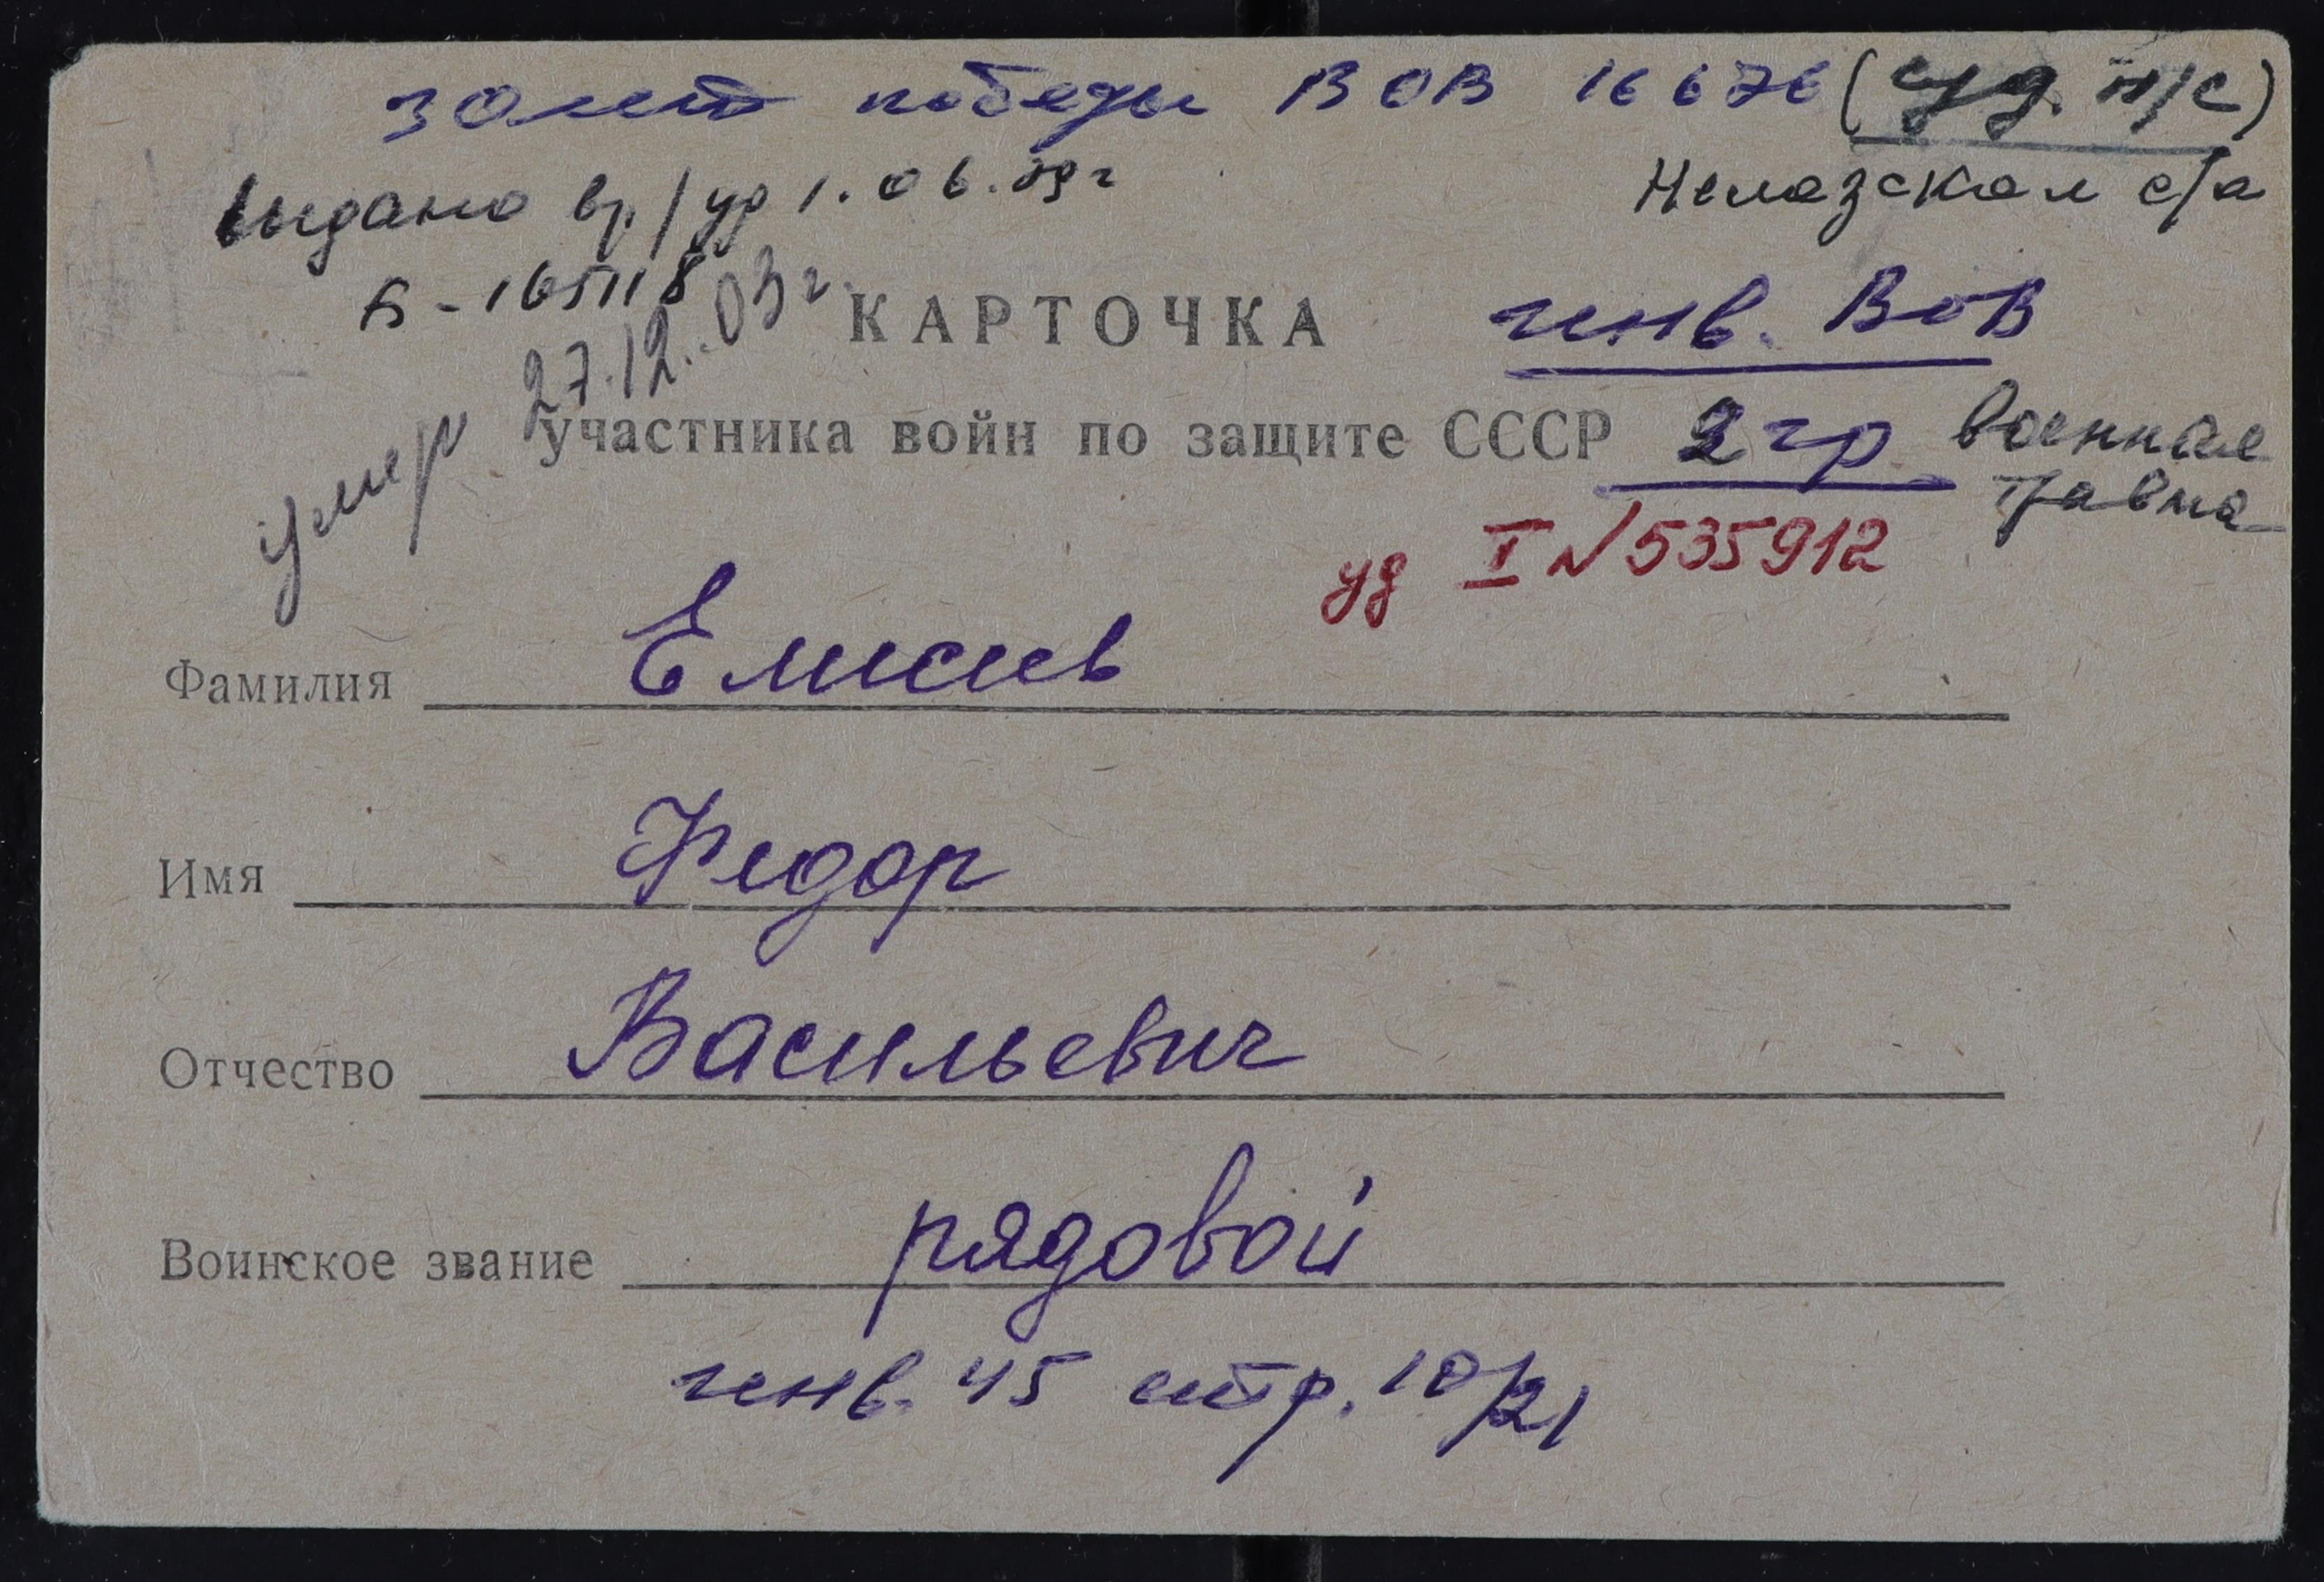 30 лет победы ВОВ 16676 (уд. н/с)
Выдано вр/уд 1.06.89г
Нелазская с/а
Б-165118
умер 27.12.03г.
КАРТОЧКА
инв. ВОВ
участника войн по защите СССР
2 гр
военная
травма
уд I № 535912
Фамилия Елисеев
Имя Федор
Отчество Васильевич
Воинское звание рядовой
инв. 45 стр. 10/21